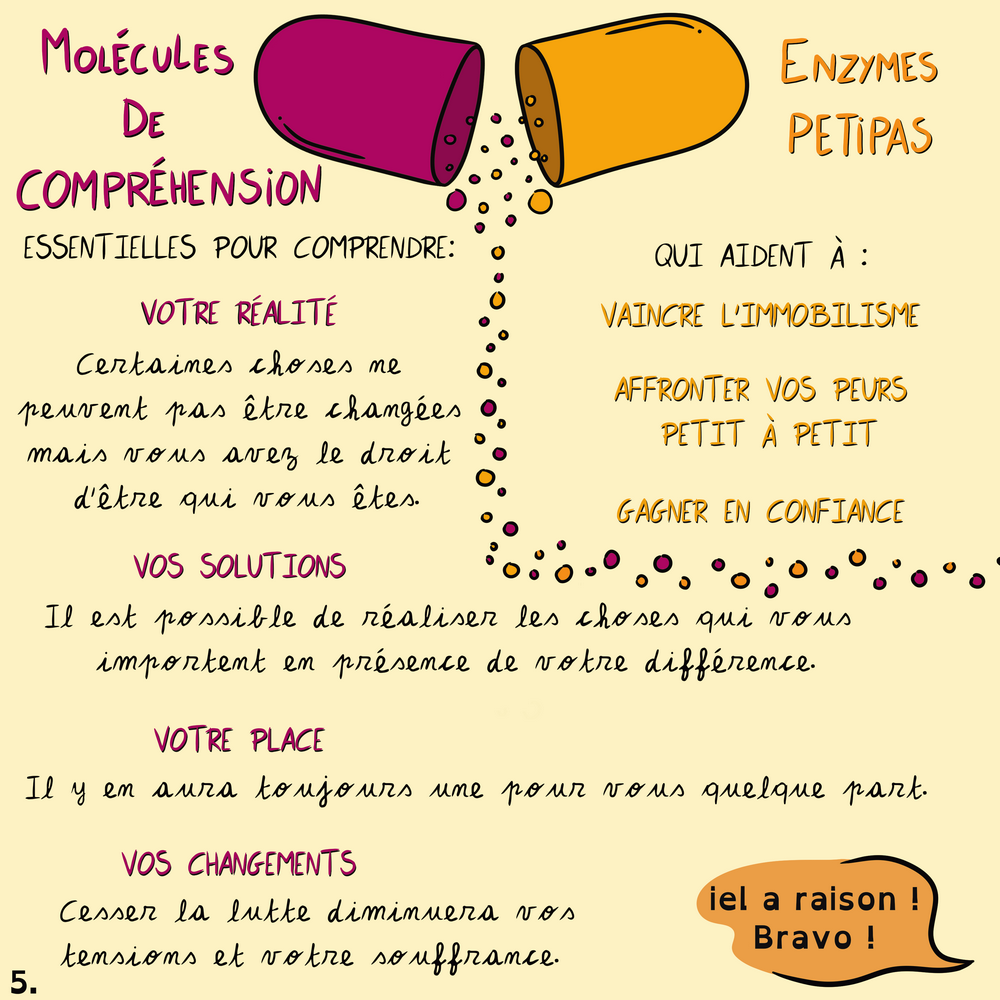 MOLÉCULES
DE
COMPRÉHENSION
ESSENTIELLES POUR COMPRENDRE:
VOTRE RÉALITÉ
Certaines choses ne
peuvent pas être changées
mais vous avez le droit
d'être qui vous êtes.
ENZYMES
PETIPAS
QUI AIDENT À :
VAINCRE L'IMMOBILISME
AFFRONTER VOS PEURS
PETIT À PETIT
GAGNER EN CONFIANCE
VOS SOLUTIONS
Il est possible de réaliser les choses qui vous
importent en présence de votre différence.
VOTRE PLACE
Il y en aura toujours une pour vous quelque part.
VOS CHANGEMENTS
Cesser la lutte diminuera vos
tensions et votre souffrance.
iel a raison !
Bravo !
5.